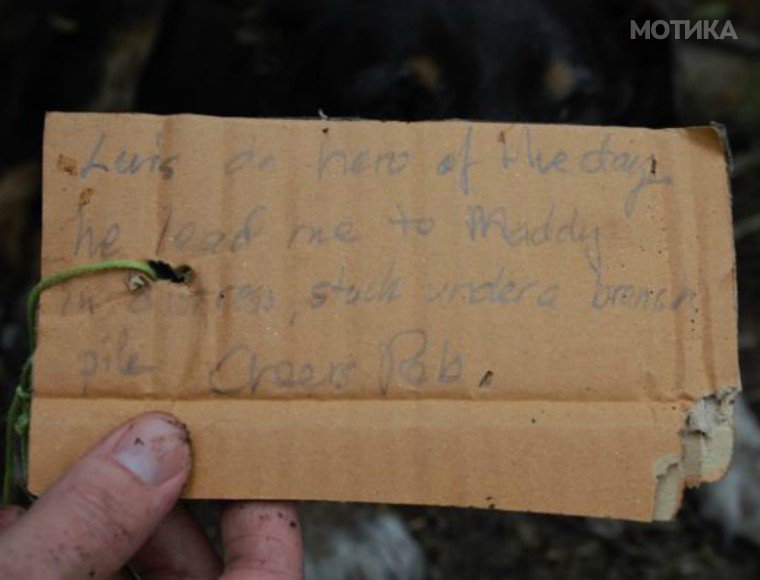 МОТИКА
Luis da hero of the day
he lead me to Maddy
in distress, stuck under a branch
pile Cheers Rob.